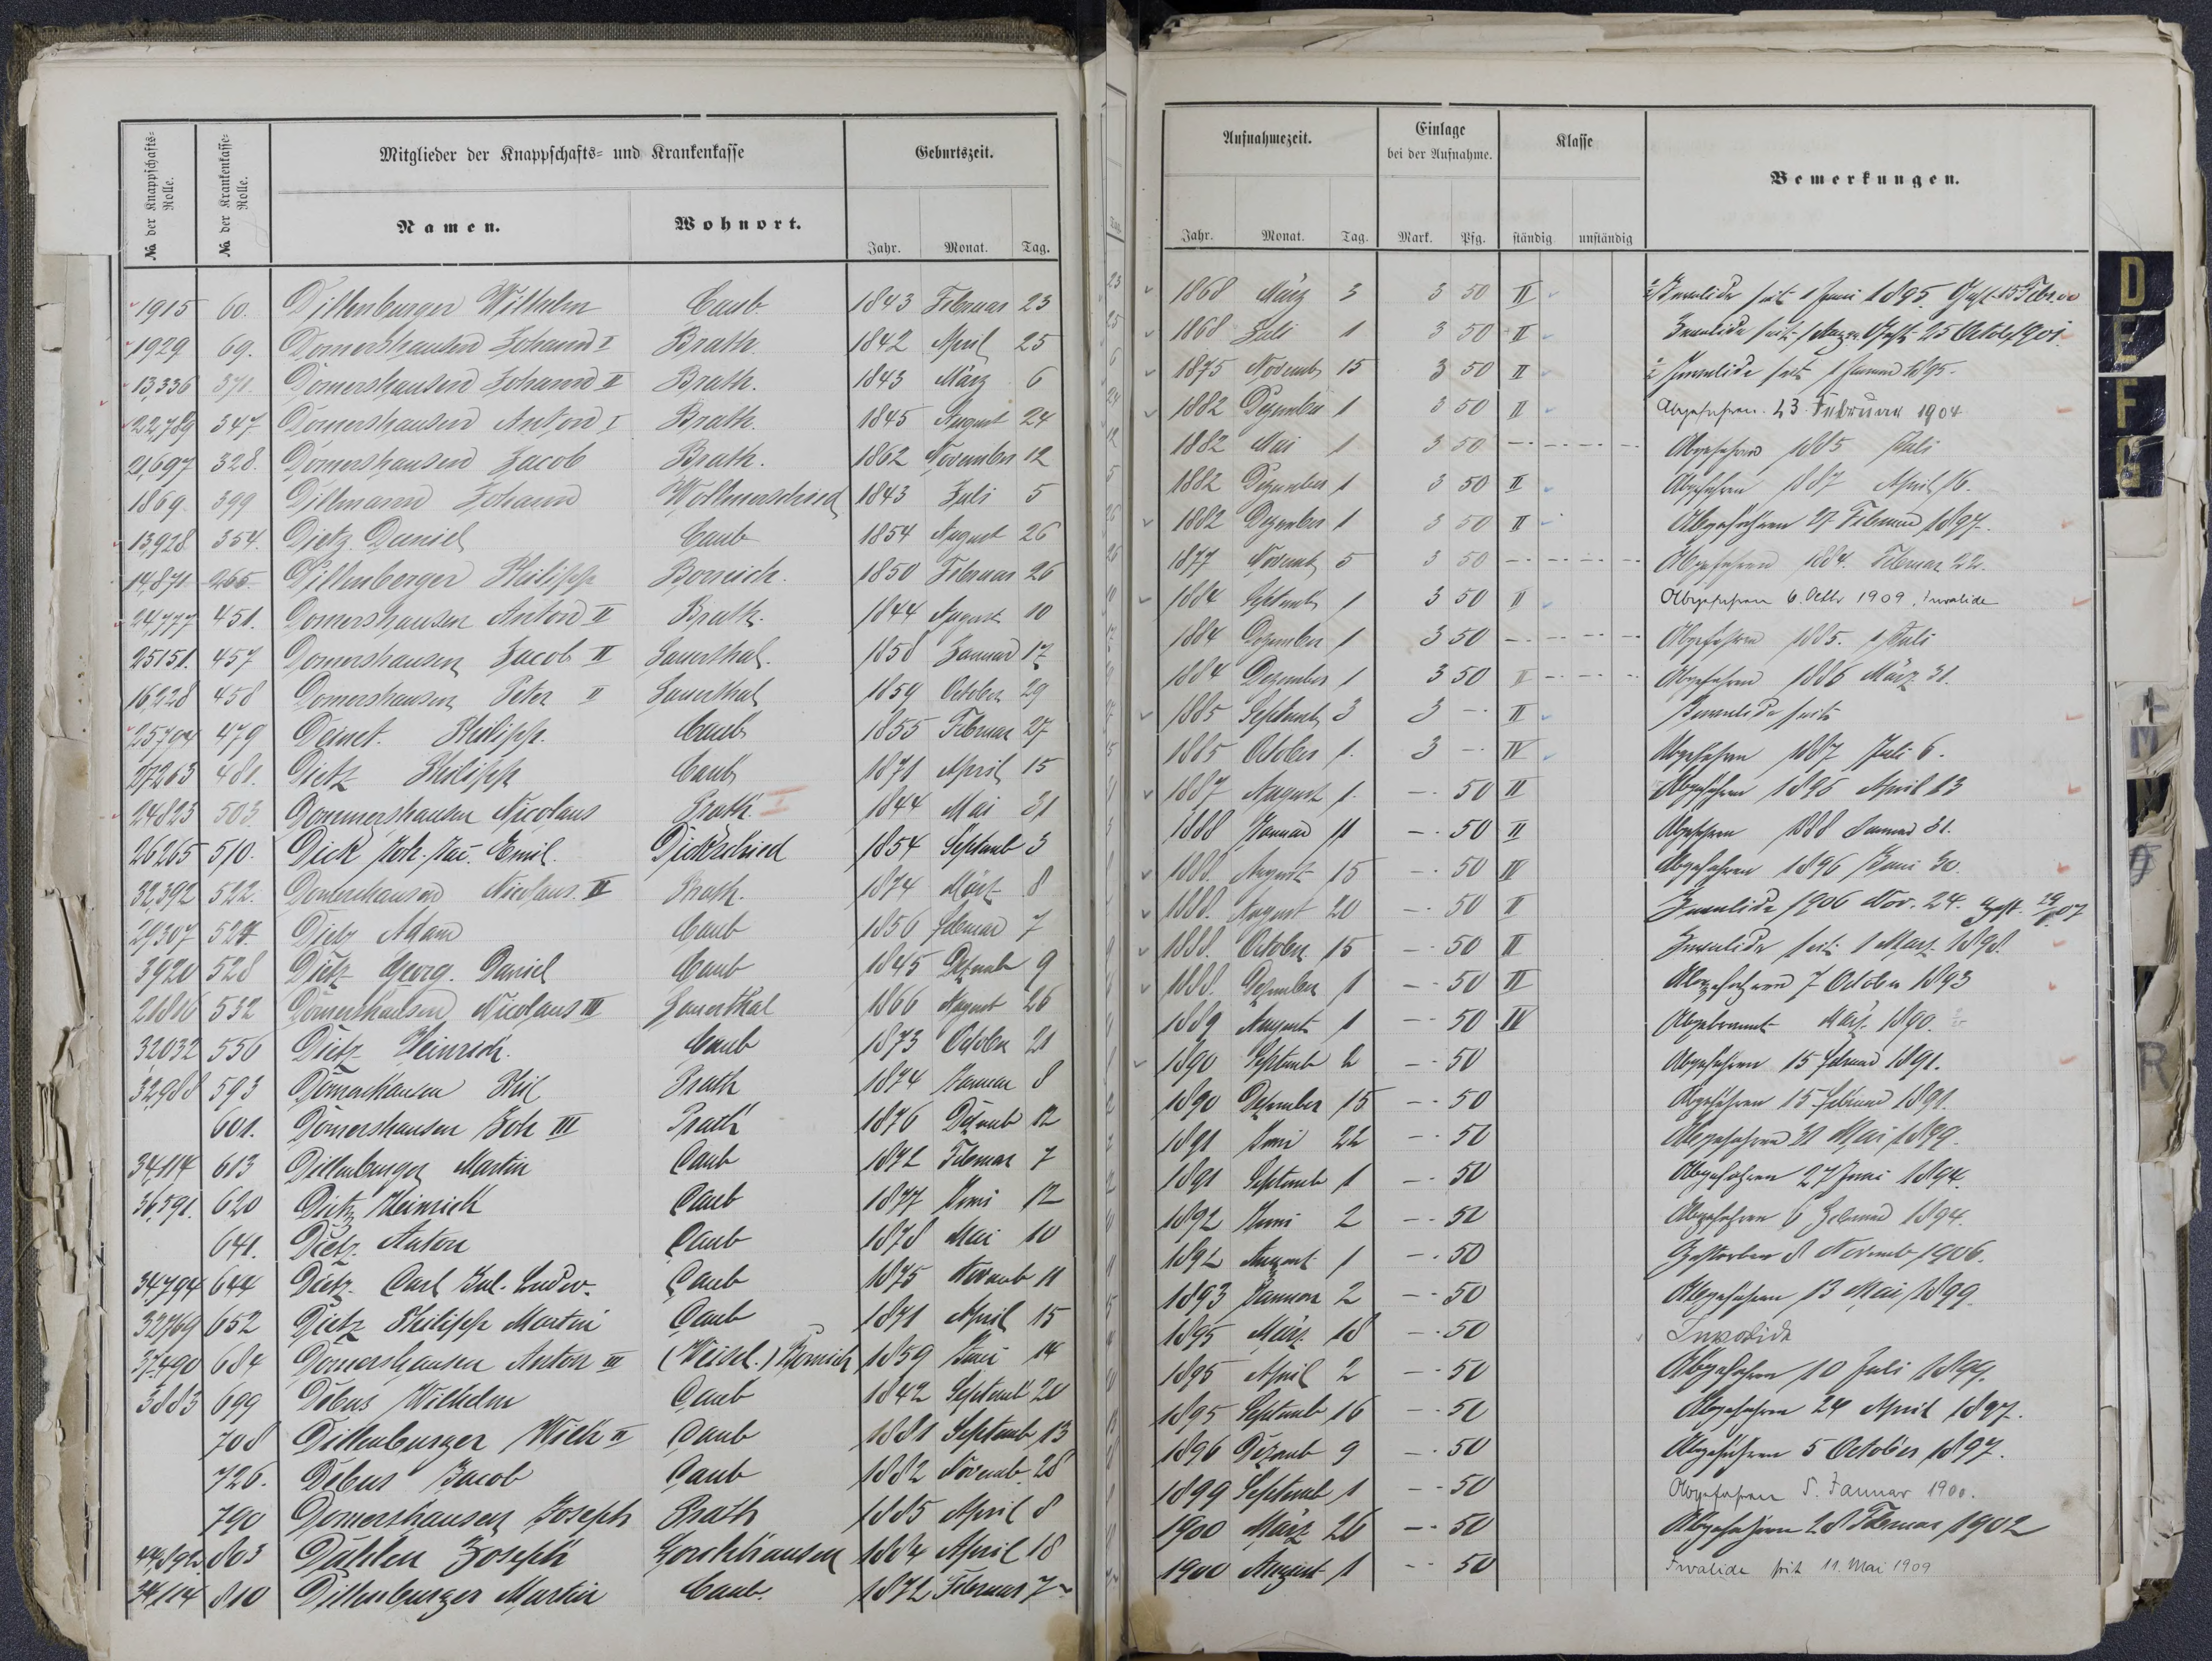 № der Knappschafts-Rolle.
№ der Krankenkasse-Rolle.
Mitglieder der Knappschafts- und Krankenkasse
Namen.
Wohnort.
Geburtszeit.
Jahr. Monat. Tag.
1915 60. Dillenburger Wilhelm Caub 1843 Februar 23
1929 69. Domershausen Johann I Prath. 1842 April 25
13,336 371. Domershausen Johann II Prath. 1843 März 6
22,789 347. Domershausen Anton I Prath. 1845 August 24
21,697 328. Domershausen Jacob Prath. 1862 November 12
1869. 399 Dillmann Johann Wollmerschied 1843 Juli 5
13,928 354. Dietz Daniel Caub 1854 August 26
14,871 265. Dillenberger Philipp Bornich. 1850 Februar 26
24,777 451. Domershausen Anton II Prath. 1844 August 10
25151. 457 Domershausen Jacob II Sauerthal. 1858 Januar 17
16,228 458 Domershausen Peter II Sauerthal 1859 October 29
25794 479 Deinet. Philipp. Caub 1855 Februar 27
27263 481. Dietz Philipp Caub 1871 April 15
24823 503. Dommershausen Nicolaus Prath. I 1844 Mai 31
26265 510. Dick Joh. Jac. Emil. Dickschied 1854 Septemb 3
32,392 522. Domershausen Nicolaus. II Prath. 1874 März 8
29307 527. Dietz Adam Caub 1856 Februar 7
3920 528 Dietz Georg. Daniel Caub 1845 Dezemb 9
21816 552 Domershausen Nicolaus III Sauerthal 1866 August 26
32032 556 Dietz Heinrich. Caub 1873 October 21
32,988 593 Domershausen Phil Prath 1874 Januar 8
601. Domershausen Joh III Prath 1876 Dezemb 12
34,114 613 Dillenburger Martin Caub 1872 Februar 7
36,591. 620 Dietz Heinrich Caub 1877 Juni 12
641. Dietz Anton Caub 1878 Mai 10
34,794 644 Dietz Carl Jul. Ludw. Caub 1875 Novemb 11
32769 652 Dietz Philipp Martin Caub 1871 April 15
37,490 684 Domershausen Anton III (Weisel.) Bornich 1859 Juni 14
3883 699 Debus Wilhelm Caub 1842 Septemb 20
708 Dillenburger Wilh II Caub 1881 Septemb 13
726. Debus Jacob Caub 1882 Novemb. 28
790 Domershausen Joseph Prath 1885 April 8
44,892. 803 Dahlen Joseph Lorchhausen 1884 April 18
34,114 810 Dillenburger Martin Caub. 1872 Februar 7
Aufnahmezeit.
Einlage bei der Aufnahme.
Klasse
Bemerkungen.
Jahr. Monat. Tag. Mark. Pfg. ständig unständig
1868 März 3 3 50 II Invalide seit 1 Juni 1895. Gest. 15 Febr. 00
1868 Juli 1 3 50 II Invalide seit Gest. 25 Octob. 1901.
1875 Novemb 15 3 50 II Invalide seit 1 Januar 1895.
1882 Dezember 1 3 50 II Abgefahren. 23. Februar 1904
1882 Mai 1 3 50 Abgefahren 1885 Juli
1882 Dezember 1 3 50 II Abgefahren 1887 April 16.
1882 Dezember 1 3 50 II Abgefahren 27 Februar 1897.
1877 Novemb 5 3 50 Abgefahren 1884. Februar 22.
1884 Septemb 1 3 50 II Abgefahren 6. Octbr 1909, Invalide
1884 Dezember 1 3 50 Abgefahren 1885. 1 Juli
1884 Dezember 1 3 50 II Abgefahren 1886 März 31.
1885 Septemb 3 3 - II Invalide seit
1885 October 1. 3 - IV Abgefahren 1887 Juli 6.
1887 August 1. - 50 II Abgefahren 1896 April 13
1888 Januar 11 - 50 II Abgefahren 1888 Januar 31.
1888. August 15 - 50 IV Abgefahren 1896 Juni 30.
1888. August 20 - 50 II Invalide 1906 Nov. 24. Gest. 07
1888. October 15 - 50 II Invalide seit 1 März 1898.
1888. Dezember 1 - 50 II Abgefahren 7 October 1893
1889 August 1 - 50 IV Abgebrannt März 1890.
1890 Septemb 2 - 50 Abgefahren 15 Februar 1891.
1890 Dezember 15 - 50 Abgefahren 15 Februar 1891.
1891 Juni 22 - 50 Abgefahren 31 Mai 1899.
1891 Septemb 1 - 50 Abgefahren 27 Juni 1894.
1892 Juni 2 - 50 Abgefahren 6 Februar 1894.
1892 August 1 - 50 Gestorben 8 Novemb 1906.
1893 Januar 2 - 50 Abgefahren 13 Mai 1899.
1895 März 18 - 50 Invalide
1895 April 2 - 50 Abgefahren 10 Juli 1899.
1895 Septemb 16 - 50 Abgefahren 24 April 1897.
1896 Dezemb 9 - 50 Abgefahren 5 October 1897.
1899 Septemb 1 - 50 Abgefahren 5. Januar 1900.
1900 März 26 - 50 Abgefahren 28 Februar 1902
1900 August 1 - 50 Invalide seit 11. Mai 1909
D
E
F
G
L
M
N
R